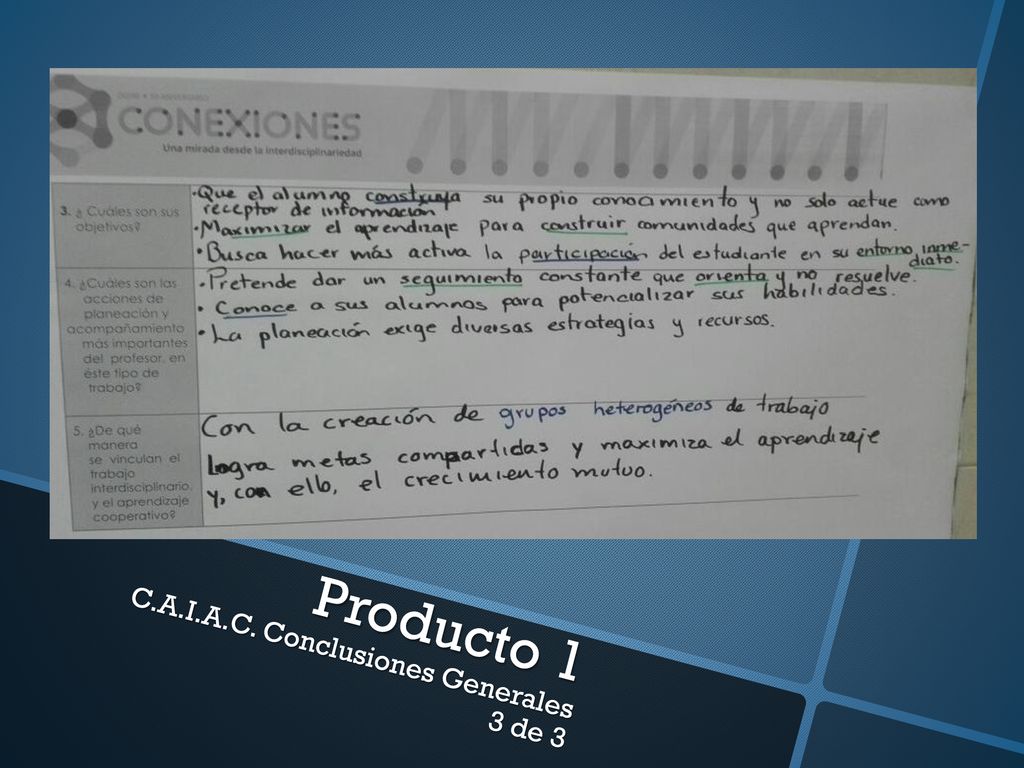 CONEXIONES
Una mirada desde la interdisciplinariedad
3. ¿ Cuáles son sus
objetivos?
•Que el alumno construya su propio conocimiento y no solo actue como
receptor de información
•Maximizar el aprendizaje para construir comunidades que aprendan.
•Busca hacer más activa la participación del estudiante en su entorno inme-
diato.
4. ¿Cuáles son las
acciones de
planeación y
acompañamiento
más importantes
del profesor, en
éste tipo de
trabajo?
•Pretende dar un seguimiento constante que orienta y no resuelve.
• Conoce a sus alumnos para potencializar sus habilidades.
•La planeación exige diversas estrategias y recursos.
5. ¿De qué
manera
se vinculan el
trabajo
interdisciplinario,
y el aprendizaje
cooperativo?
Con la creación de grupos heterogéneos de trabajo
logra metas compartidas y maximiza el aprendizaje
y, con ello, el crecimiento mutuo.
Producto 1
C.A.I.A.C. Conclusiones Generales
3 de 3